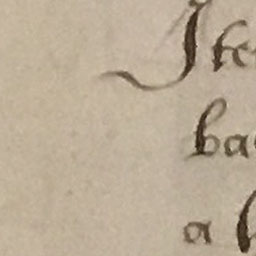 Ite
ba
a